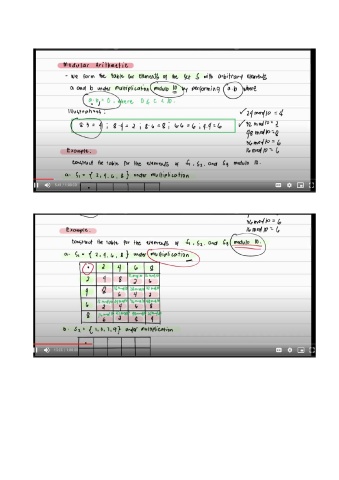 Modular Arithmetic
- We form the table for elements of the set S with arbitrary elements
a and b under multiplication modulo 10 by performing a·b where
a·b = c, where 0 ≤ c < 10.
Illustrations:
8·3 = 4; 8·4 = 2; 8·6 = 8; 6·6 = 6; 4·4 = 6
✓ 24 mod 10 = 4
✓ 32 mod 10 = 2
48 mod 10 = 8
36 mod 10 = 6
16 mod 10 = 6
Example.
Construct the table for the elements of S₁, S₂, and S₃ modulo 10.
a. S₁ = { 2, 4, 6, 8 } under multiplication
16 mod 10 = 6
Example.
Construct the table for the elements of S₁, S₂, and S₃ modulo 10.
a. S₁ = { 2, 4, 6, 8 } under multiplication
· 2 4 6 8
2 4 8 2 6
4 8 6 4 2
6 2 4 6 8
8 6 2 8 4
b. S₂ = { 1, 3, 7, 9 } under multiplication